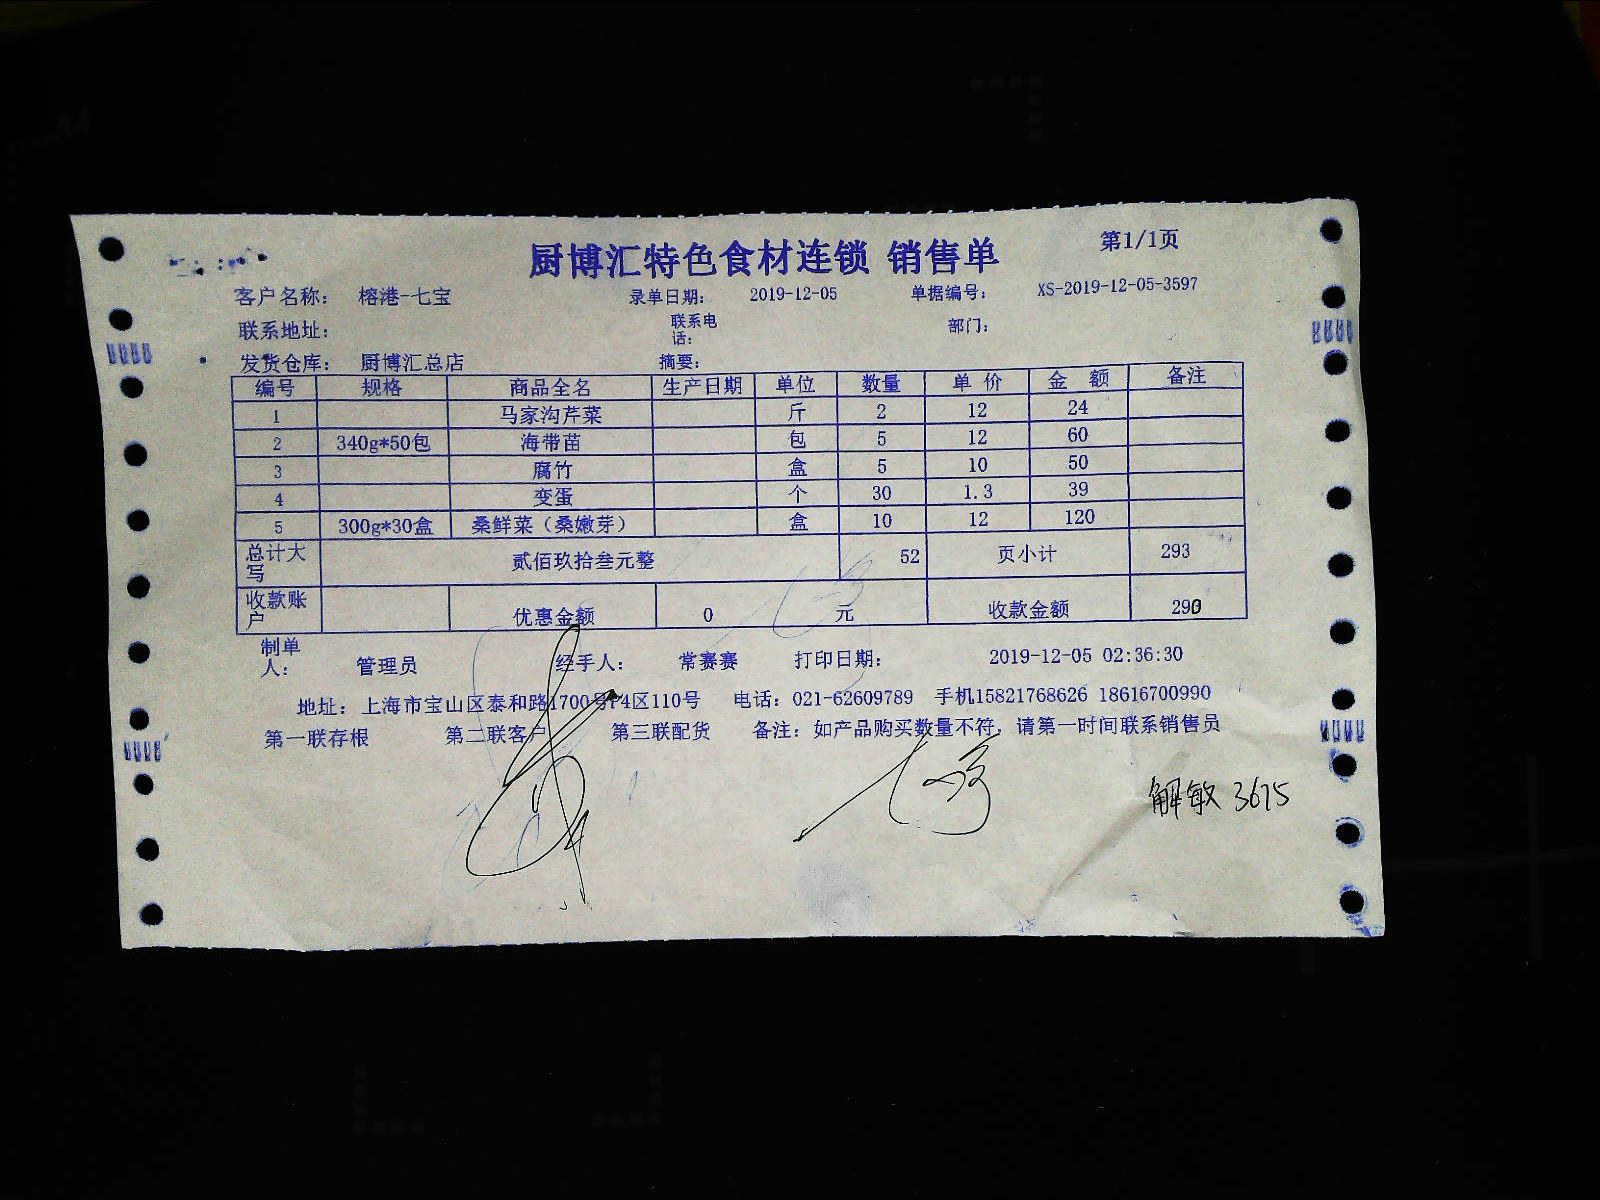 厨博汇特色食材连锁 销售单 第1/1页
客户名称： 榕港-七宝 录单日期： 2019-12-05 单据编号： XS-2019-12-05-3597
联系地址： 联系电话： 部门：
发货仓库： 厨博汇总店 摘要：
编号 规格 商品全名 生产日期 单位 数量 单 价 金 额 备注
1 马家沟芹菜 斤 2 12 24
2 340g*50包 海带苗 包 5 12 60
3 腐竹 盒 5 10 50
4 变蛋 个 30 1.3 39
5 300g*30盒 桑鲜菜（桑嫩芽） 盒 10 12 120
总计大写 贰佰玖拾叁元整 52 页小计 293
收款账户 优惠金额 0 元 收款金额 290
制单人： 管理员 经手人： 常赛赛 打印日期： 2019-12-05 02:36:30
地址：上海市宝山区泰和路1700号P4区110号 电话：021-62609789 手机15821768626 18616700990
第一联存根 第二联客户 第三联配货 备注：如产品购买数量不符，请第一时间联系销售员
解敏 3675